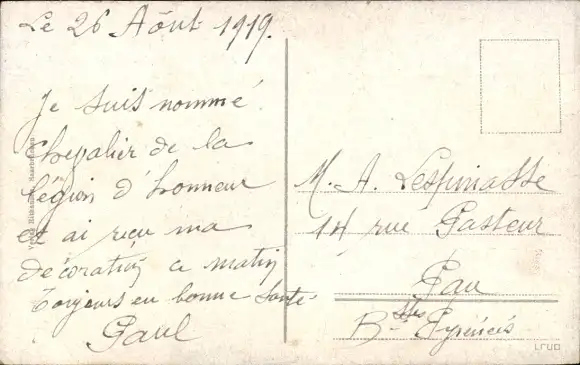 Le 26 Août 1919.
Je suis nommé
Chevalier de la
légion d'honneur
et ai reçu ma
décoration ce matin
Toujours en bonne santé.
Paul
M. A. Lespinasse
14 rue Pasteur
Pau
B-ses Pyrénées
Verlag